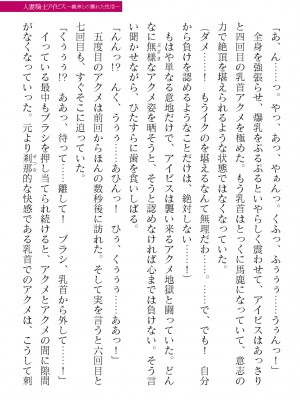 人妻騎士アイビス
「あ、んっ。やっ、あっ、やぁんっ。くふっ、ふぅぅぅ……うぅんっ!」
全身を強張らせ、爆乳をぶるぶるといやらしく震わせて、アイビスはあっさり
と四回目の乳首アクメを極めた。もう乳首はとっくに馬鹿になっていて、意志の
力で絶頂を堪えられるような状態ではなくなっていた。
(ダメ……! もうイクのを堪えるなんて無理だわ……。で、でも! 自分
から負けを認めるようなことだけは、絶対しない……!)
もはや単なる意地だけで、アイビスは襲い来るアクメ地獄と闘っていた。どん
なに無様なアクメ姿を晒そうと、そうと認めなければ心までは負けない。そう言
い聞かせながら、ひたすらに歯を食いしばる。
「んんっ!? んく、うぅぅ……あひんっ! ひぅ、くぅぅぅ……ああっ!」
五度目のアクメは前回からほんの数秒後に訪れた。そして実を言うと六回目と
七回目も、すぐそこに迫っていた。
「くぅぅぅ!? ああっ、待って……離して! ブラシ、乳首から外して……!」
達した最中でもブラシを押し当てられ続けると、アクメとアクメの間に隙間
がなくなっていった。元より刹那的な快感である乳首でのアクメは、こうして刺